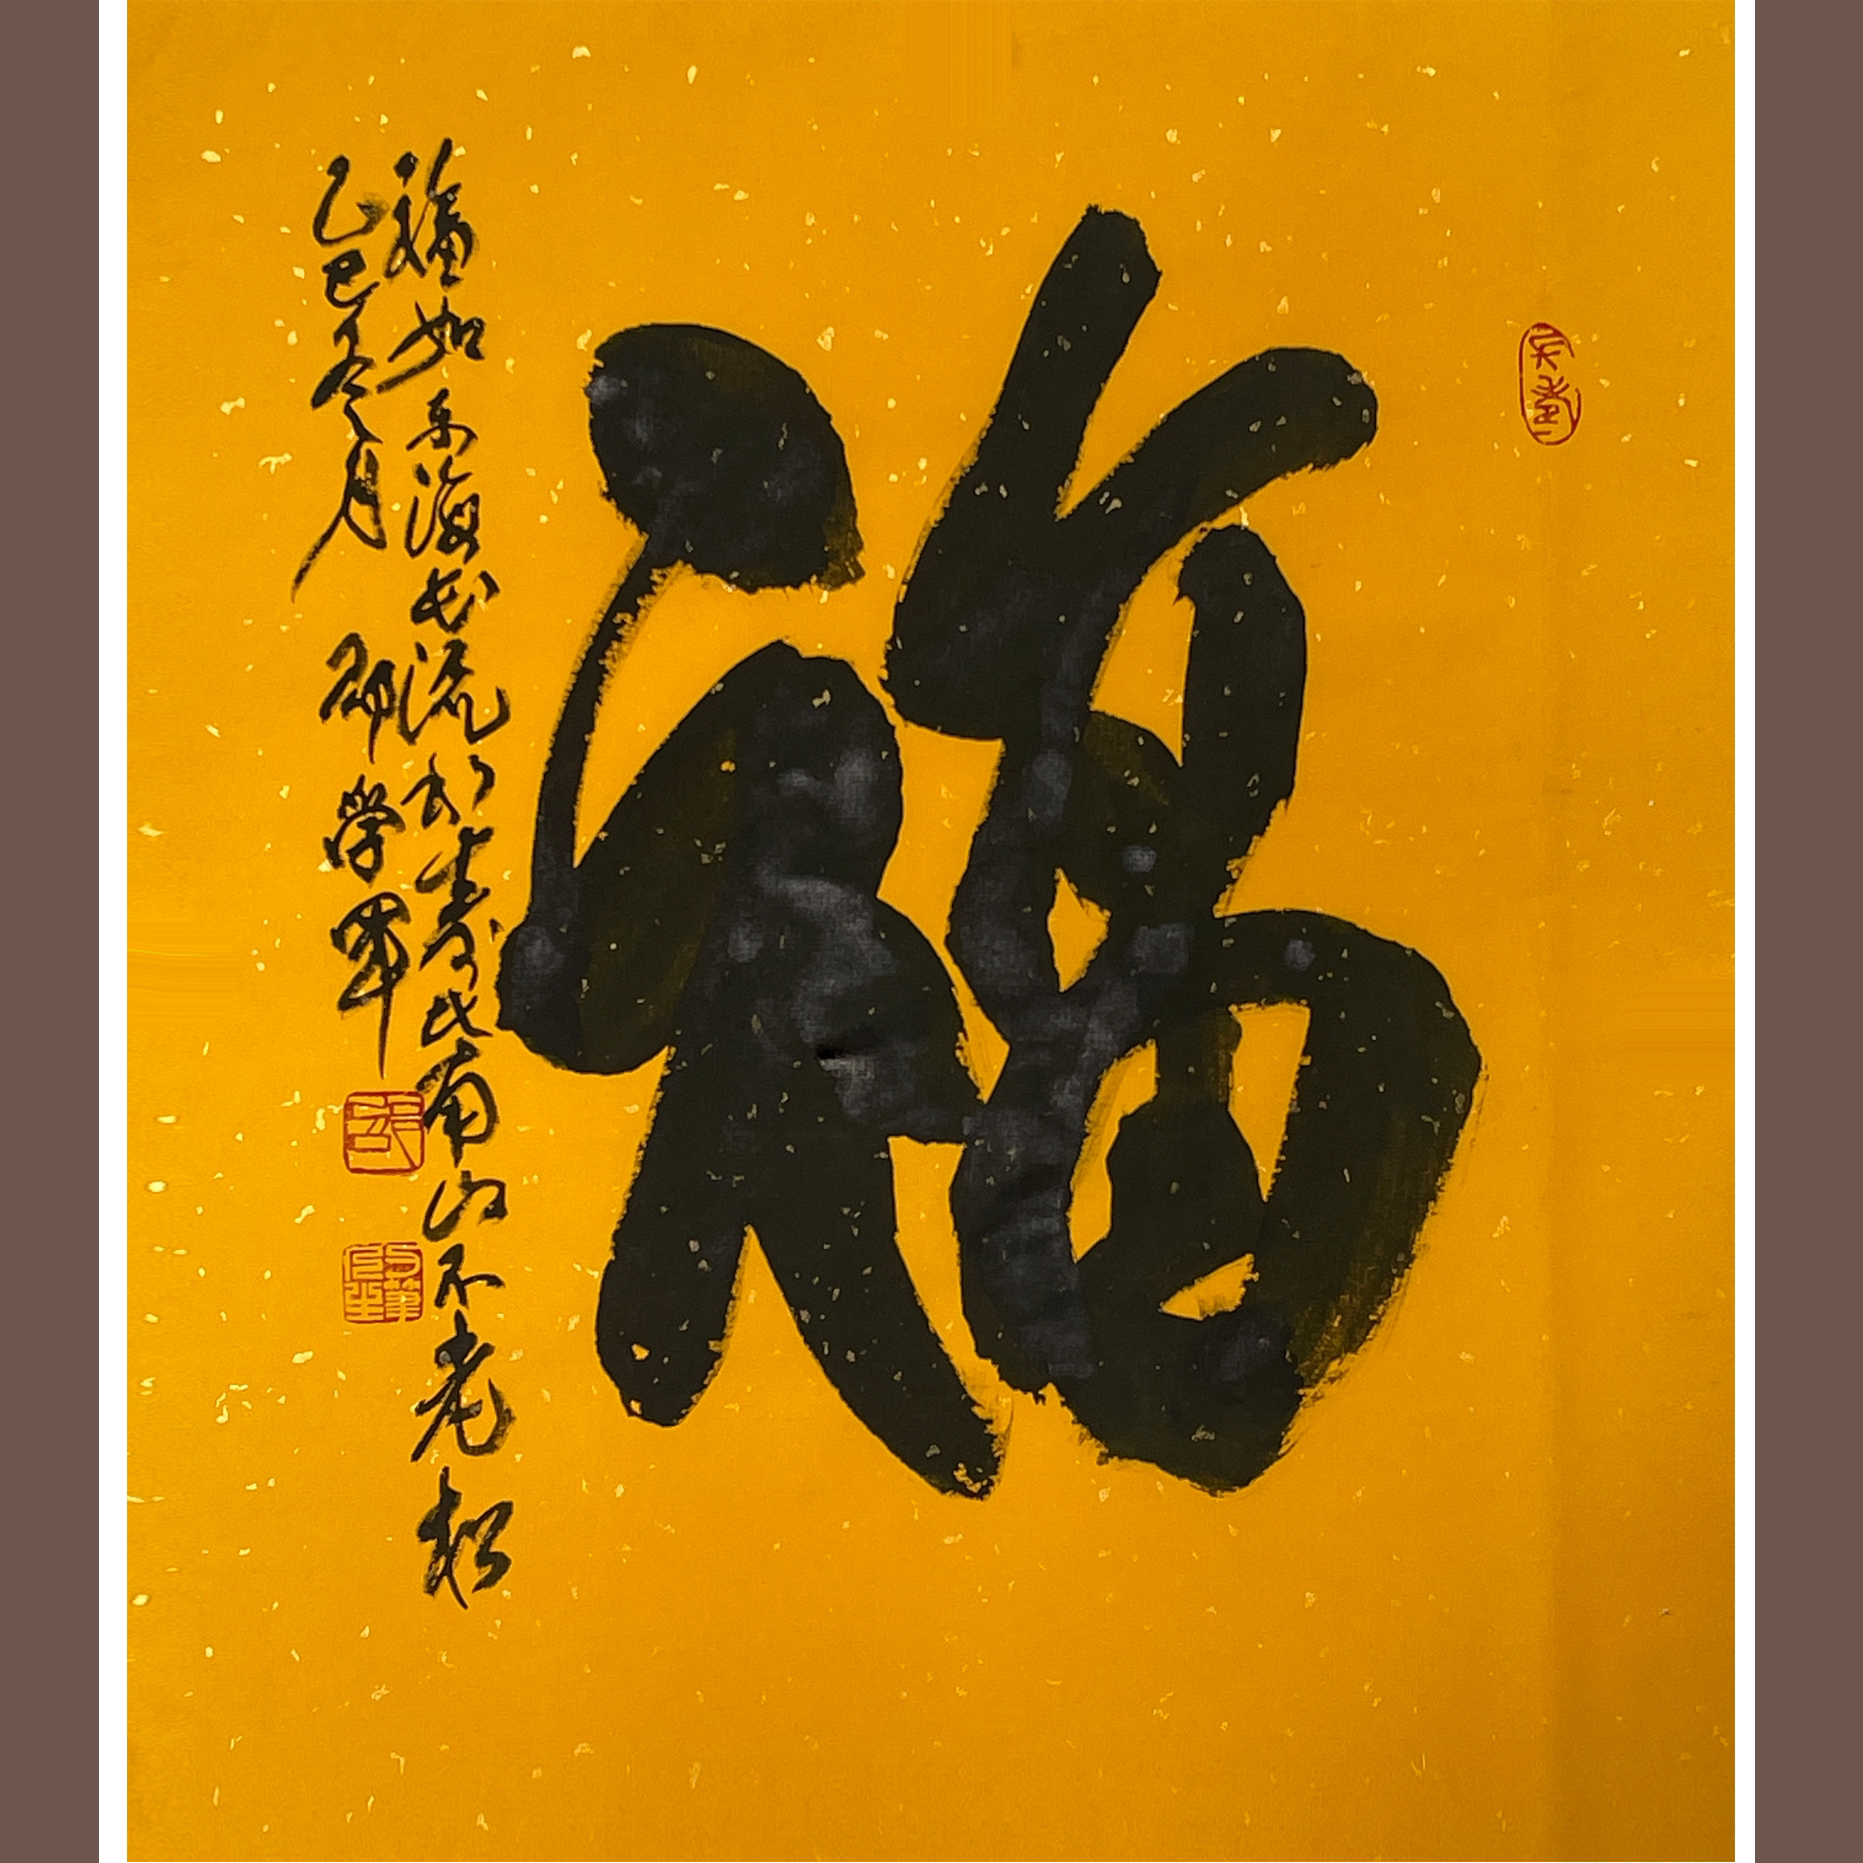 福
福如东海长流水寿比南山不老松
乙巳冬月 邵学军